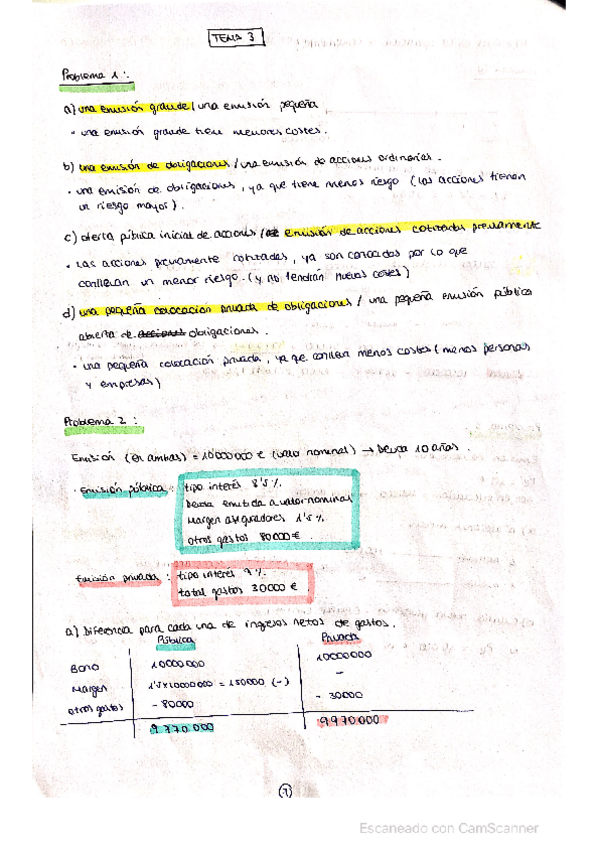 TEMA 3
Problema 1:
a) una emisión grande / una emisión pequeña
- una emisión grande tiene menores costes.
b) una emisión de obligaciones / una emisión de acciones ordinarias.
- una emisión de obligaciones, ya que tiene menos riesgo (las acciones tienen
un riesgo mayor).
c) oferta pública inicial de acciones / emisión de acciones cotizadas previamente
- Las acciones previamente cotizadas, ya son conocidas por lo que
conllevan un menor riesgo. (y no tendrán nuevos costes)
d) una pequeña colocación privada de obligaciones / una pequeña emisión pública
abierta de acciones obligaciones.
- una pequeña colocación privada, ya que conlleva menos costes (menos personas
y empresas)
Problema 2:
Emisión (en ambas) = 10000000 € (valor nominal) → Deuda 10 años.
Emisión pública: tipo interés 8'5%
Deuda emitida a valor nominal
Margen aseguradores 1'5%
otros gastos 80000 €
Emisión privada: tipo interés 9%
total gastos 30000 €
a) Diferencia para cada una de ingresos netos de gastos.
Pública Privada
Bono 10000000 10000000
Margen 1'5 x 10000000 = 150000 (-) -
otros gastos - 80000 - 30000
9770000 9970000
(1)
Escaneado con CamScanner